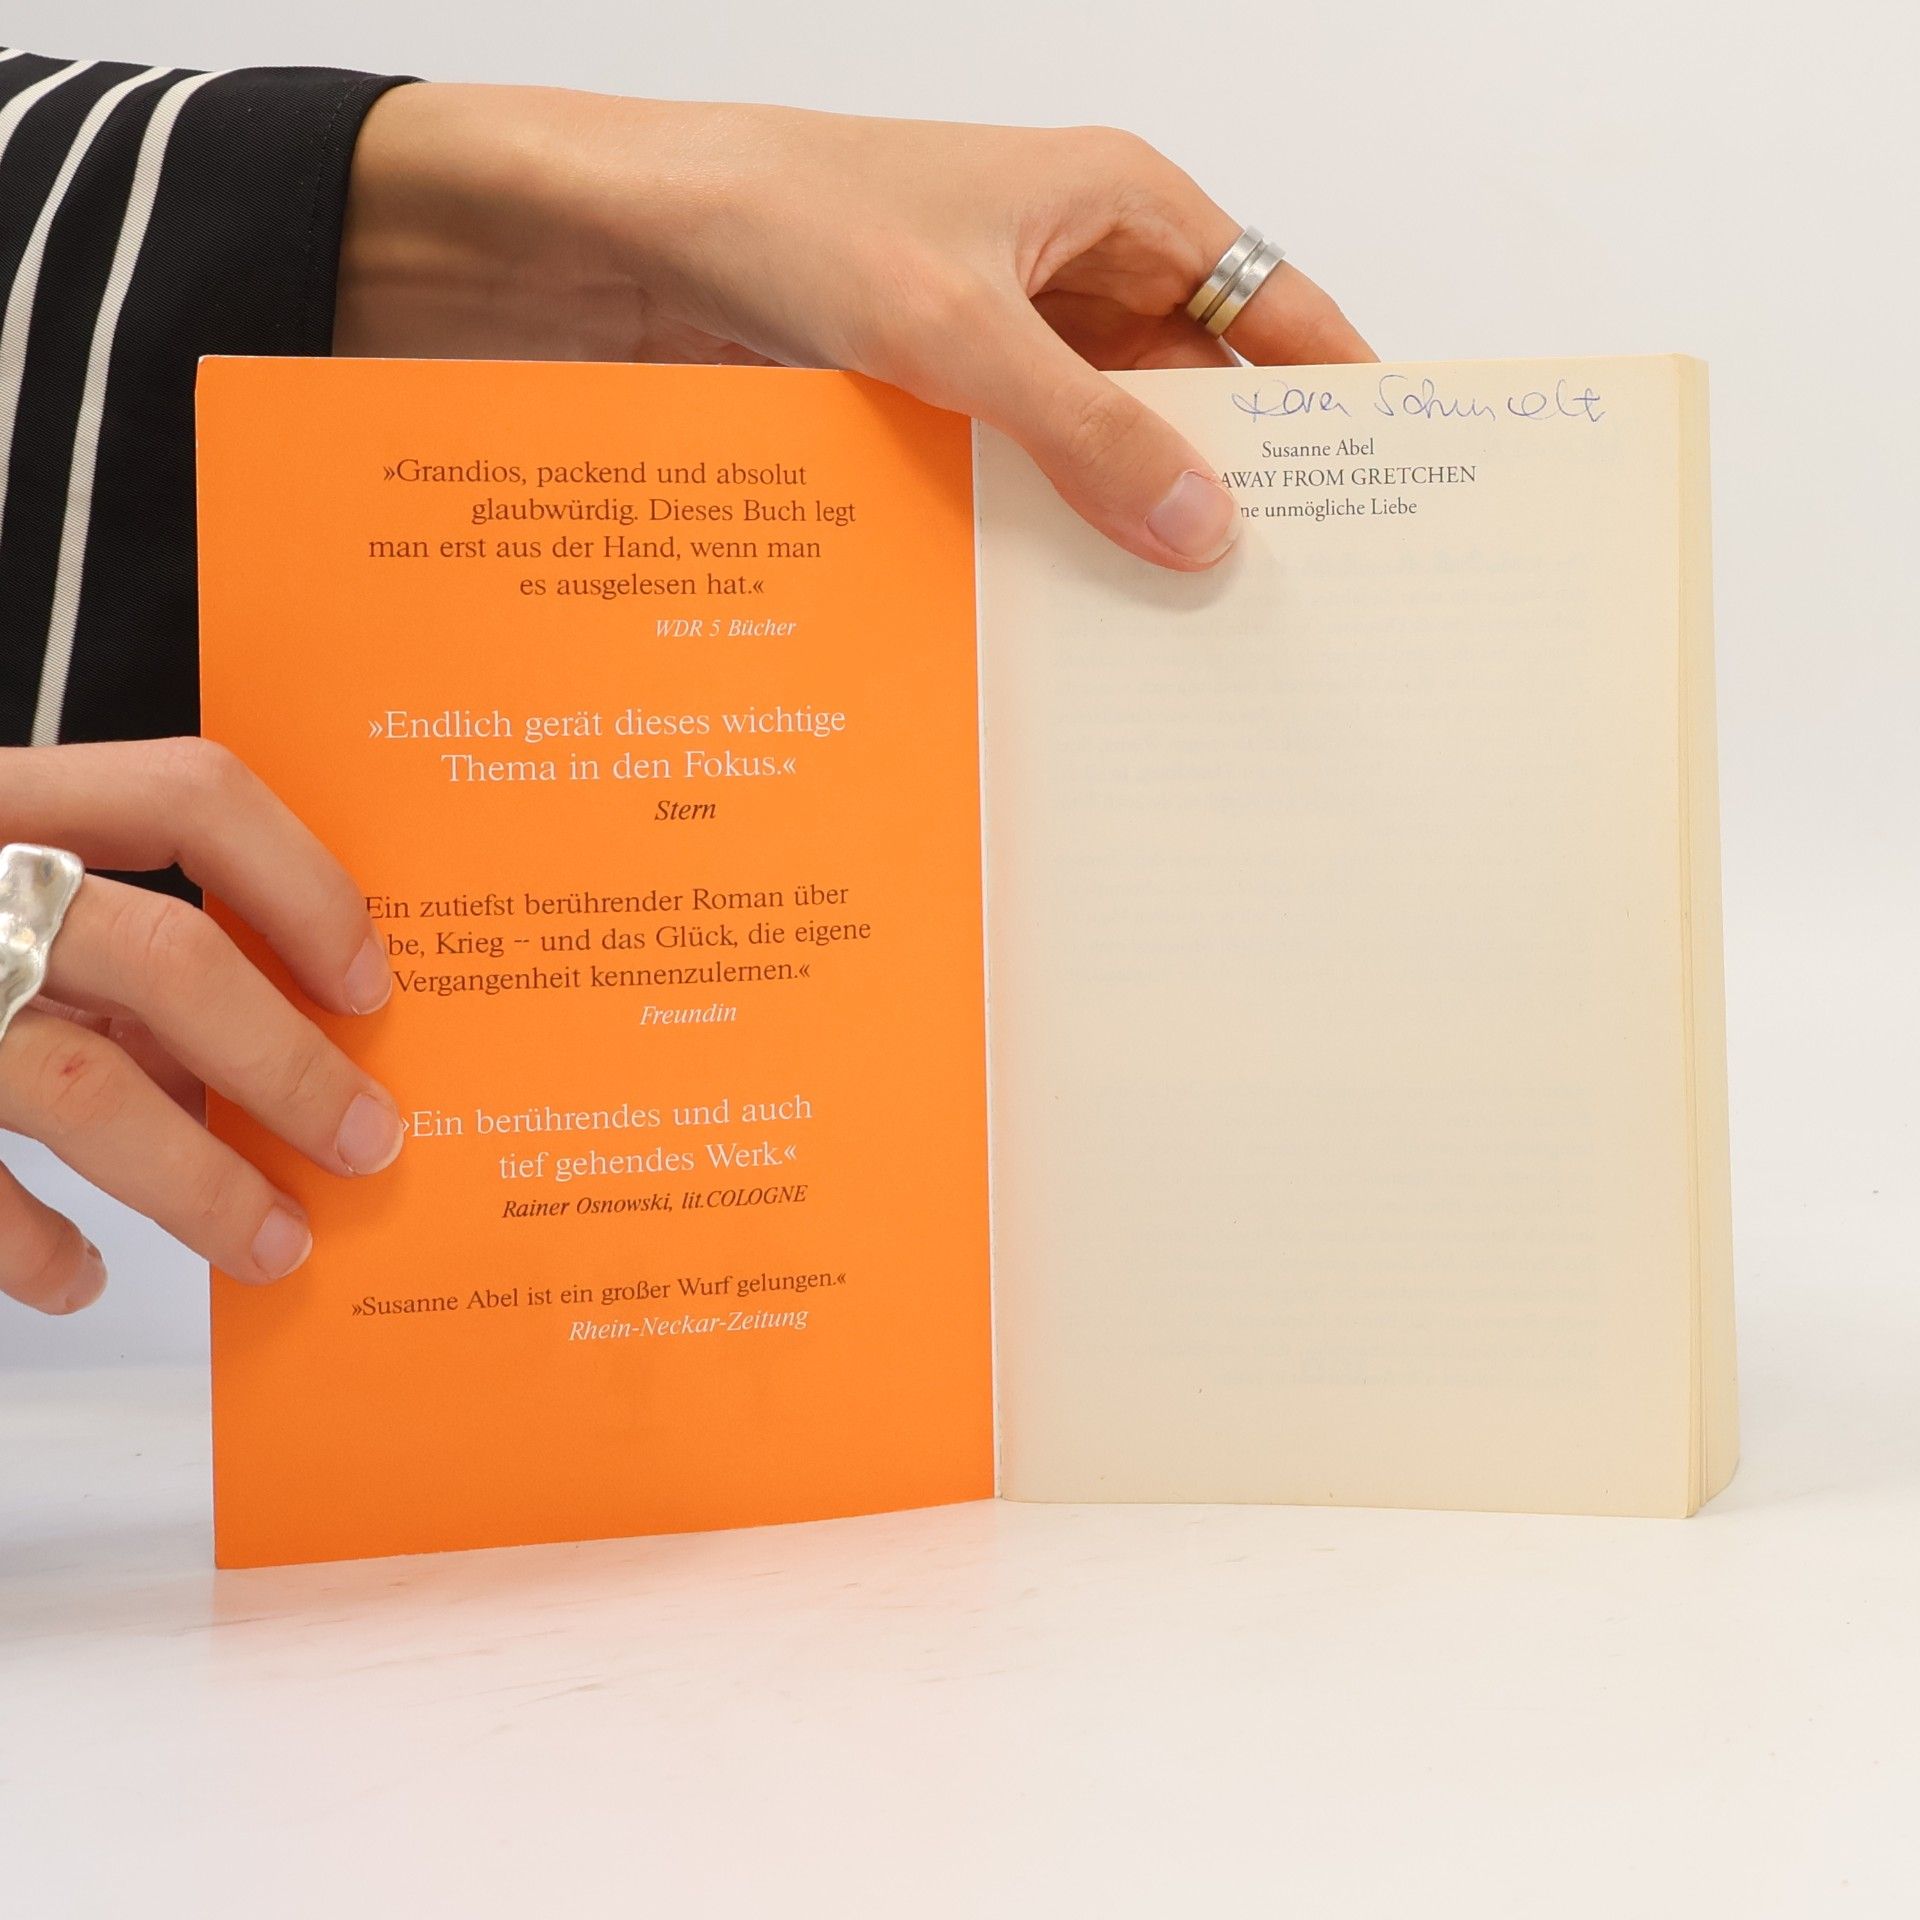 »Grandios, packend und absolut
glaubwürdig. Dieses Buch legt
man erst aus der Hand, wenn man
es ausgelesen hat.«
WDR 5 Bücher
»Endlich gerät dieses wichtige
Thema in den Fokus.«
Stern
Ein zutiefst berührender Roman über
be, Krieg -- und das Glück, die eigene
Vergangenheit kennenzulernen.«
Freundin
»Ein berührendes und auch
tief gehendes Werk.«
Rainer Osnowski, lit.COLOGNE
»Susanne Abel ist ein großer Wurf gelungen.«
Rhein-Neckar-Zeitung
Schmidt
Susanne Abel
AWAY FROM GRETCHEN
ne unmögliche Liebe